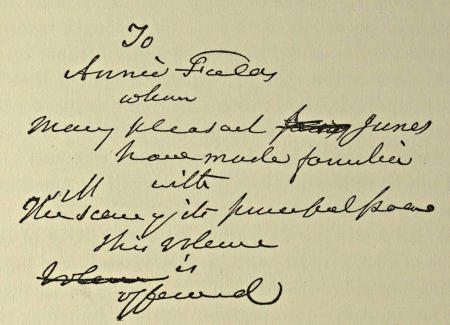 To
Annie Fields
whom
Many pleasant Junes
have made familiar
with
The scene of its principal poem
This Volume
is
offered